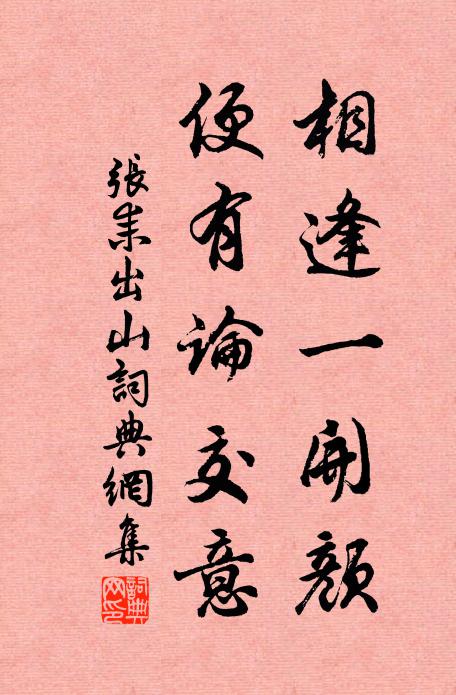 相逢一開顏
便有論交意
張耒出山詞典網集
詞典網印